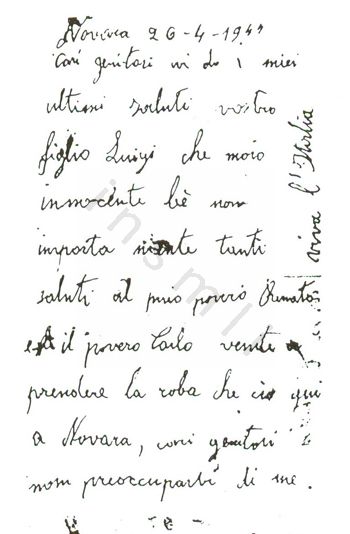 Novara 26-4-1944
Cari genitori vi do i miei
ultimi saluti vostro
figlio Luigi che moio
innocente bè non
importa niente tanti
saluti al mio povero Renato
ed il povero Carlo venite a
prendere la roba che cio qui
a Novara, cari genitori
non preoccuparvi di me.
viva l'Italia
insmli